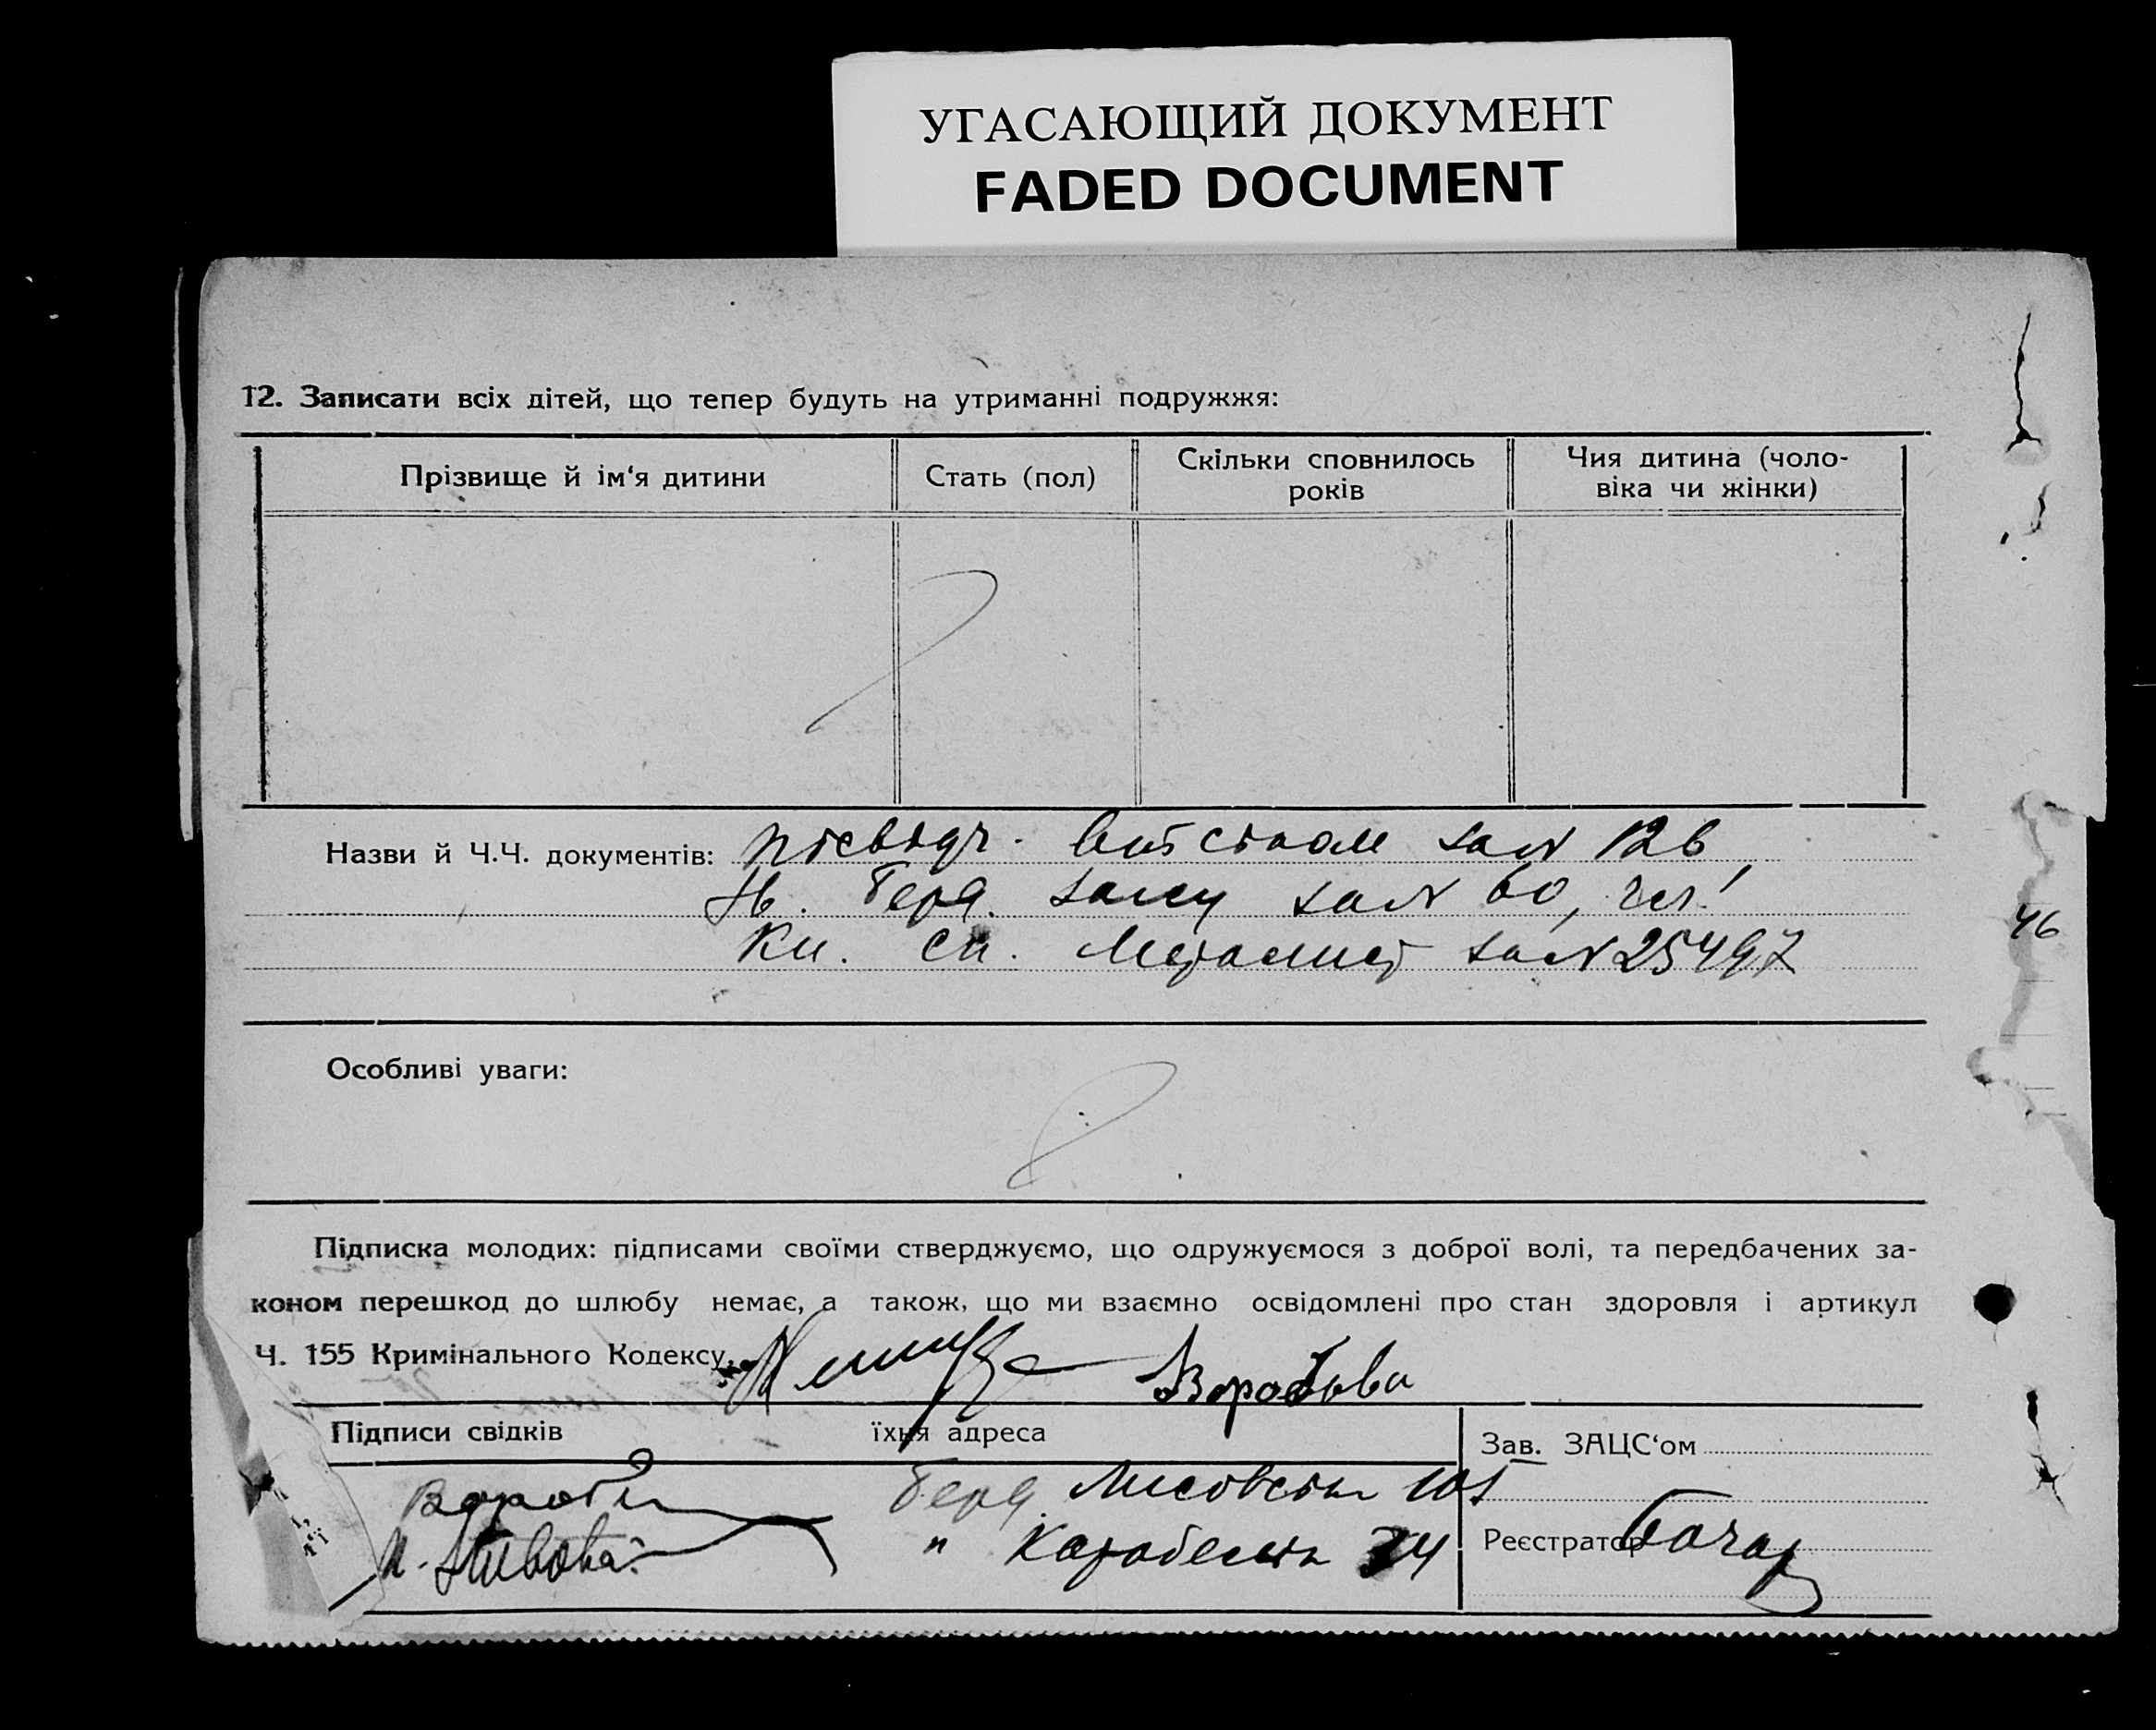 УГАСАЮЩИЙ ДОКУМЕНТ
FADED DOCUMENT
12. Записати всіх дітей, що тепер будуть на утриманні подружжя:
Прізвище й ім‘я дитини
Стать (пол)
Скільки сповнилось
років
Чия дитина (чоло-
віка чи жінки)
Назви й Ч.Ч. документів: за № 126
Берд. за № 60, чл.
Кн. сп. Металист за № 25497
46
Особливі уваги:
Підписка молодих: підписами своїми стверджуємо, що одружуємося з доброї волі, та передбачених за-
коном перешкод до шлюбу немає, а також, що ми взаємно освідомлені про стан здоровля і артикул
Ч. 155 Кримінального Кодексу. Воробьва
Підписи свідків
їхня адреса
Зав. ЗАЦС‘ом
Берд. Лисовська 101
" 34
Реєстратор